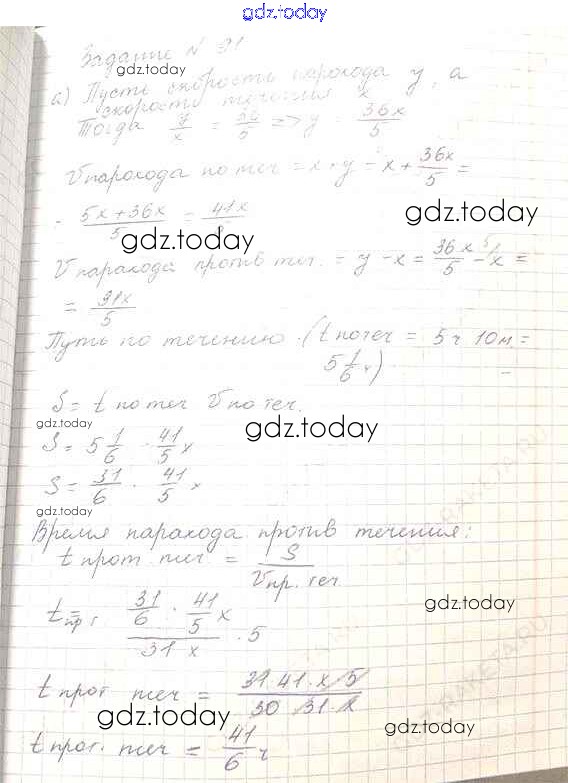 gdz.today
Задание № 31
gdz.today
а) Пусть скорость парохода y, а
скорость течения x
Тогда y/x = 36/5 => y = 36x/5
V парохода по теч = x + y = x + 36x/5 =
gdz.today
= (5x+36x)/5 = 41x/5
gdz.today
V парохода против теч. = y - x = 36x/5 - x =
= 31x/5
Путь по течению. (t по теч = 5ч 10м =
5 1/6 ч)
S = t по теч V по теч.
gdz.today
gdz.today
S = 5 1/6 · 41/5 x
S = 31/6 · 41/5 x
gdz.today
Время парахода против течения:
t прот. теч = S / V пр. теч
gdz.today
t пр т = (31/6 · 41/5 x) / 31x · 5
t прот теч = 31 41 · x · 5 / 30 31 · x
gdz.today
gdz.today
t прот. теч = 41/6 ч